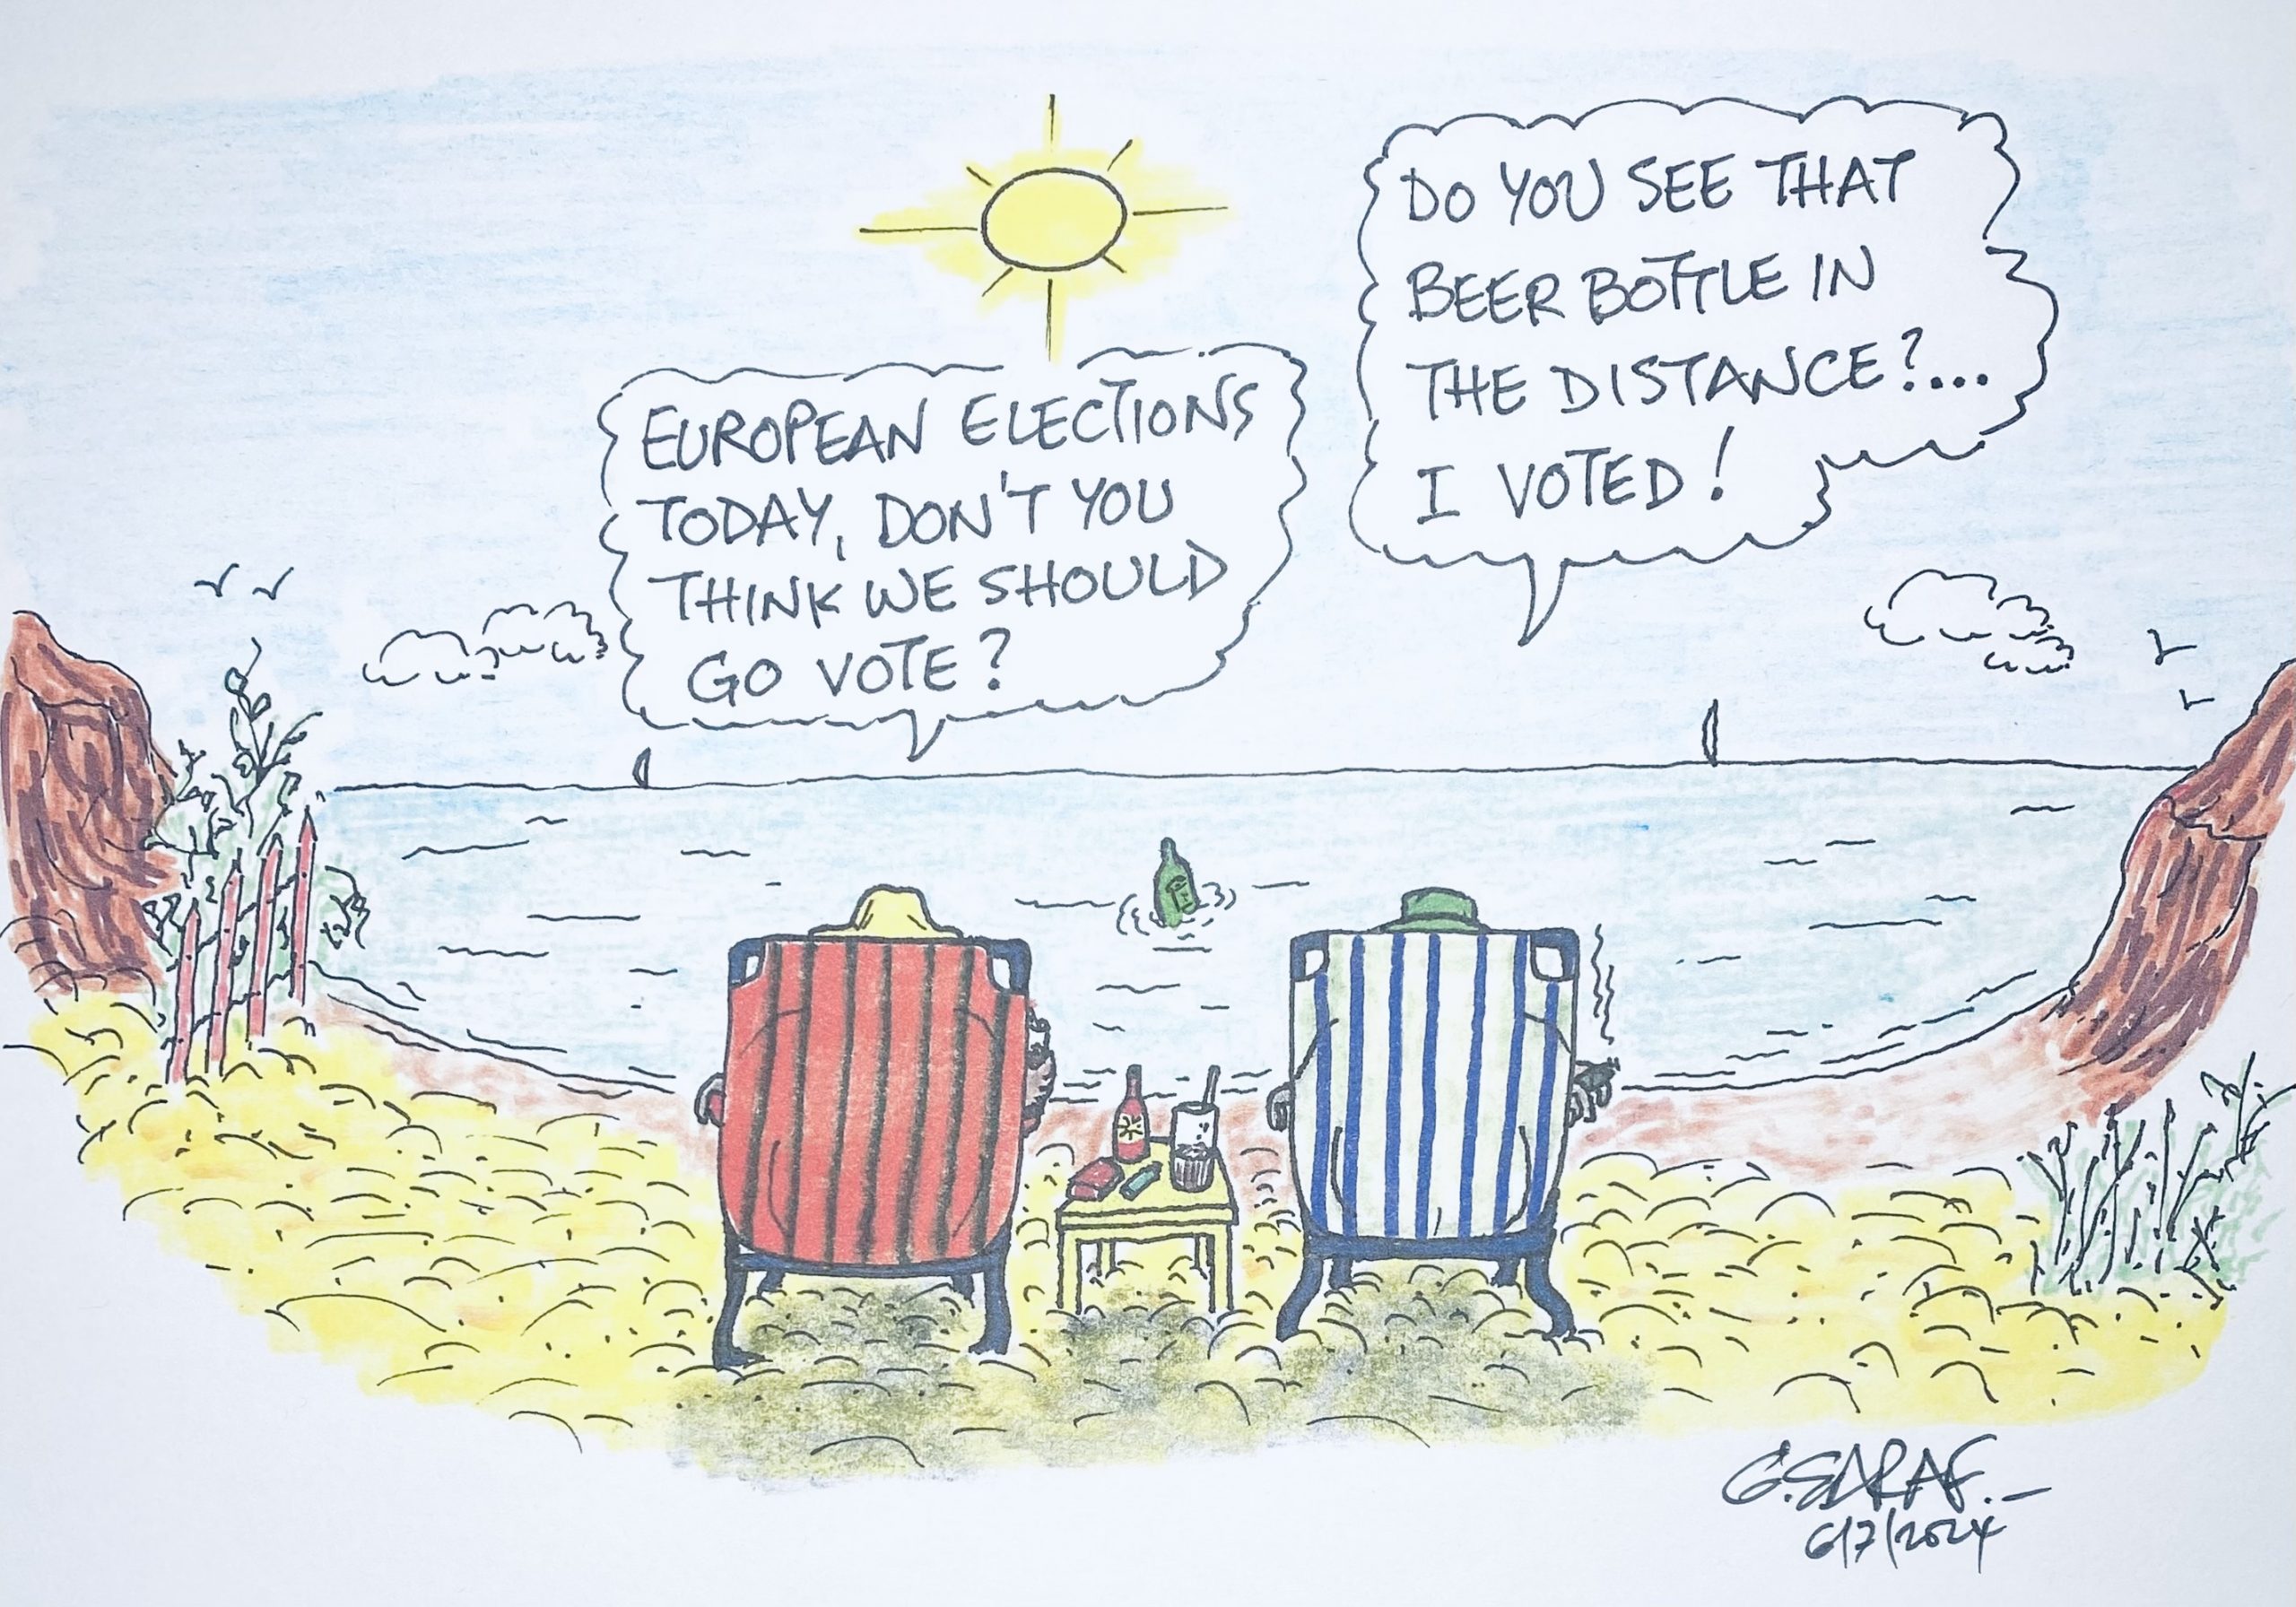 EUROPEAN ELECTIONS
TODAY, DON'T YOU
THINK WE SHOULD
GO VOTE?
DO YOU SEE THAT
BEER BOTTLE IN
THE DISTANCE?...
I VOTED!
G.SARAF.-
6/7/2024